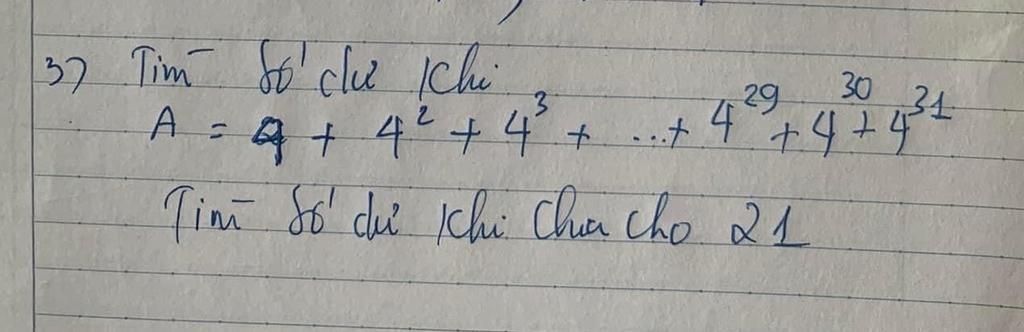 3) Tìm số dư khi
A = 4 + 4² + 4³ + ...+ 4²⁹ + 4³⁰ + 4³¹
Tìm số dư khi chia cho 21